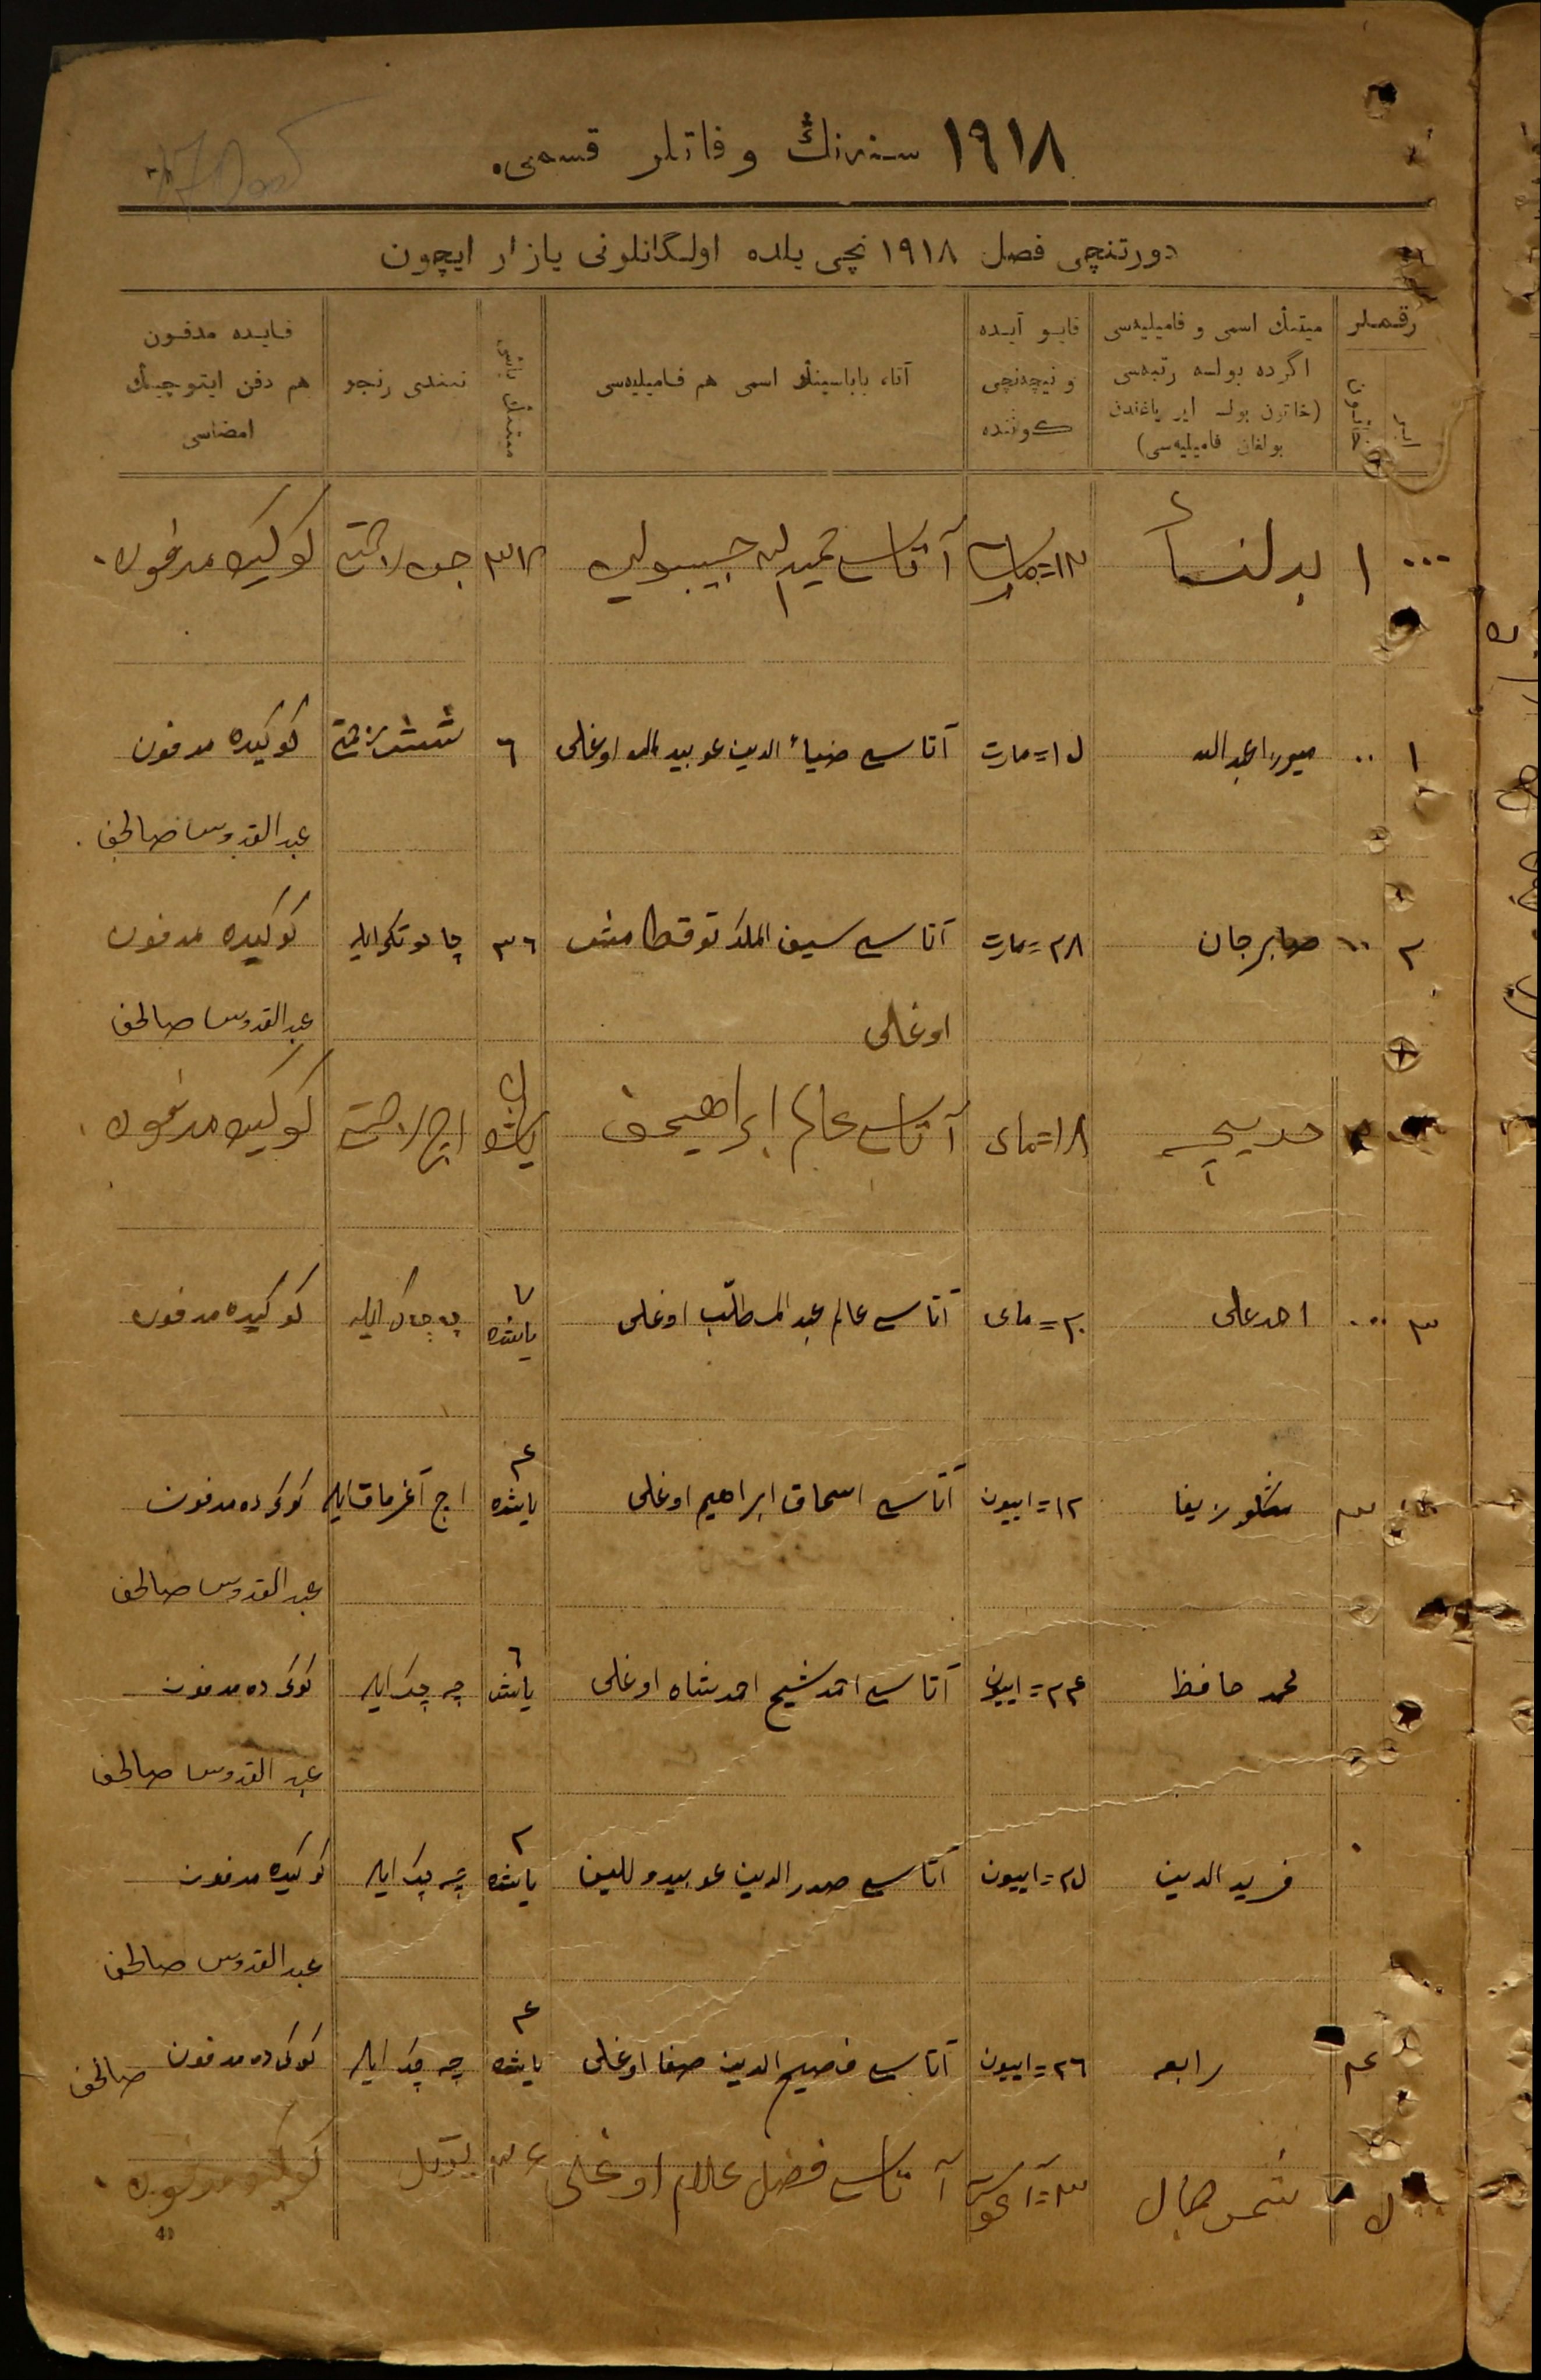 ١٩١٨ سنه‌نڭ وفاتلر قسمی.
دورتنچی فصل ١٩١٨ نچی یلده اولگانلرنی یازار ایچون
رقملر
ایرلر
خاتونلر
میتنڭ اسمی و فامیلیه‌سی
اگرده بولسه رتبه‌سی
(خاتون بولسه ایر یاغندن
بولغان فامیلیه‌سی)
قایو آیده
و نیچه‌نچی
كوننده
آتا، باباسینڭ اسمی هم فامیلیه‌سی
میتنڭ یاشی
نیندی رنجو
قایده مدفون
هم دفن ایتوچینڭ
امضاسی
١ بدلنسأ ١٣=مارت آتاسی حبیبولین ٣٨ كوكیده مدفون
١ میورا عبدالله ١٥=مارت آتاسی ضیاء الدین عوبیدالله اوغلی ٦ كوكیده مدفون
عبدالقدوس صالحف
٢ صابرجان ٢٨=مارت آتاسی سیف الملك توقطامش ٣٦ چاحوتكه ایله كوكیده مدفون
اوغلی
عبدالقدوس صالحف
٢ خدیجه ١٨=مای آتاسی عالم ابراهیمف ٥ یاشده كوكیده مدفون
٣ احدعلی ٢٠=مای آتاسی عالم عبدالمطلب اوغلی ٧ یاشنده چه‌چاك ایله كوكیده مدفون
٣ مشكورزیفا ١٢=اییون آتاسی اسحاق ابراهیم اوغلی ٤ یاشده اچ آغرماق ایله كوكی ده مدفون
عبدالقدوس صالحف
محمد حافظ ٢٤=اییون آتاسی احمد شیخ احمدشاه اوغلی ٦ یاشده چه‌چك ایله كوكی ده مدفون
عبد القدوس صالحف
فرید الدین ٢٥=اییون آتاسی صدرالدین عوبیدوللین ٢ یاشده چه‌چك ایله كوكیده مدفون
عبدالقدوس صالحف
٤ رابعه ٢٦=اییون آتاسی فصیح الدین صفا اوغلی ٤ یاشده چه‌چك ایله كوكی ده مدفون صالحف
٥ شمس جمال ٣=آغوست آتاسی فضل علام اوغلی ٣٤ كوكیده مدفون